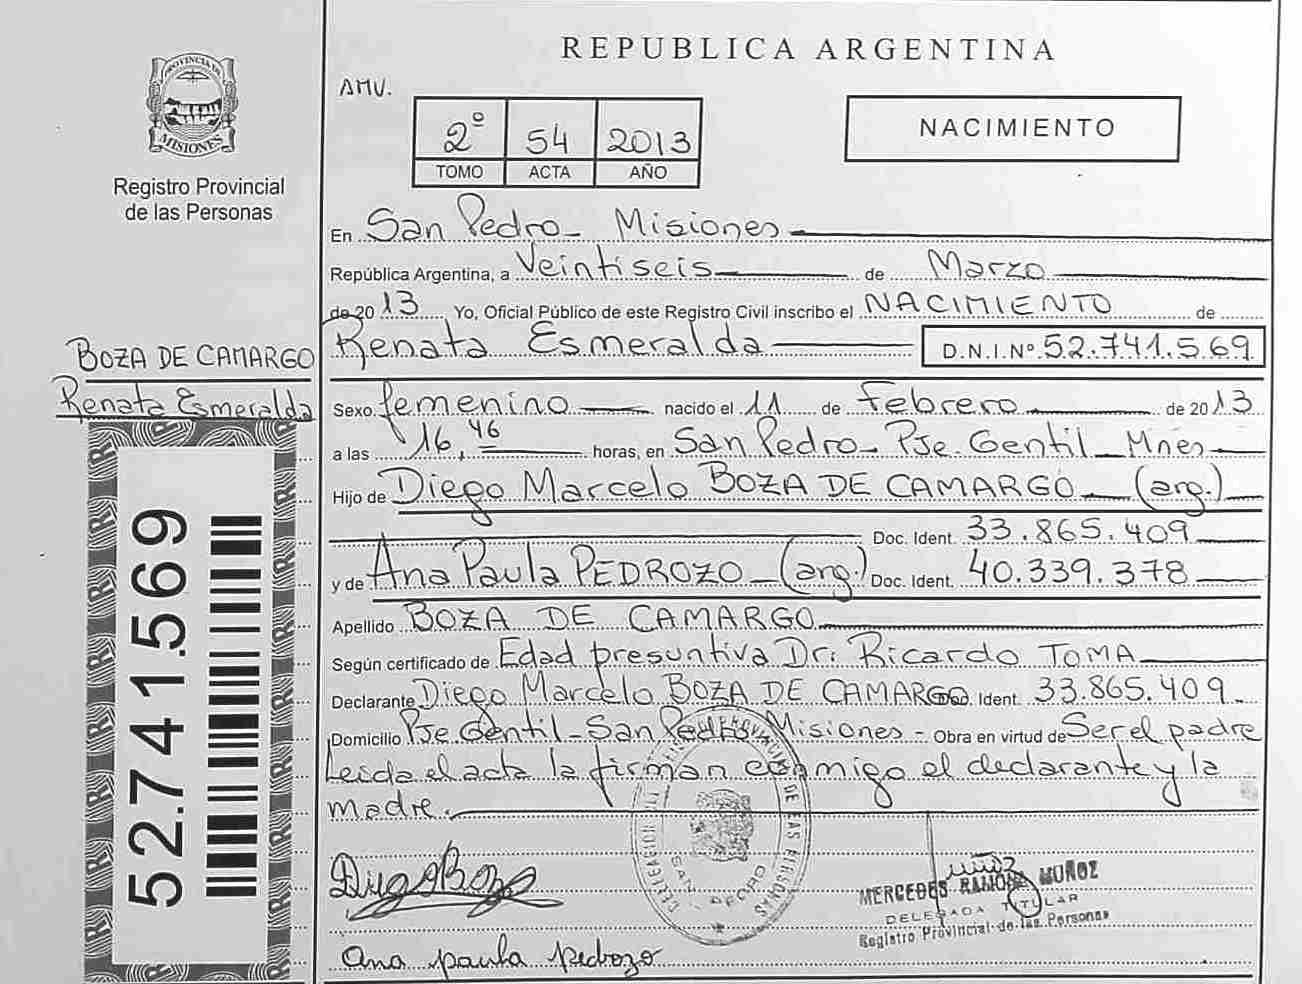 REPUBLICA ARGENTINA
AMV.
2º 54 2013
TOMO ACTA AÑO
NACIMIENTO
PROVINCIA DE
MISIONES
Registro Provincial
de las Personas
En San Pedro - Misiones
República Argentina, a Veintiseis de Marzo
de 2013 Yo, Oficial Público de este Registro Civil inscribo el NACIMIENTO de
Renata Esmeralda D.N.I.Nº 52.741.569
BOZA DE CAMARGO
Renata Esmeralda
Sexo femenino nacido el 11 de Febrero de 2013
a las 16,46 horas, en San Pedro - Pje. Gentil - Mnes
Hijo de Diego Marcelo BOZA DE CAMARGO (arg.)
Doc. Ident. 33.865.409
y de Ana Paula PEDROZO (arg.) Doc. Ident. 40.339.378
Apellido BOZA DE CAMARGO
Según certificado de Edad presuntiva Dr: Ricardo TOMA
Declarante Diego Marcelo BOZA DE CAMARGO Ident. 33.865.409
Domicilio Pje Gentil - San Pedro Misiones - Obra en virtud de Ser el padre
Leida el acta la firman conmigo el declarante y la
madre.
52.741.569
Diego Boza
DELEGACION
PROVINCIAL DE LAS PERSONAS
SAN PEDRO
MERCEDES RAMONA MUÑOZ
DELEGADA TITULAR
Registro Provincial de las Personas
Ana paula pedrozo